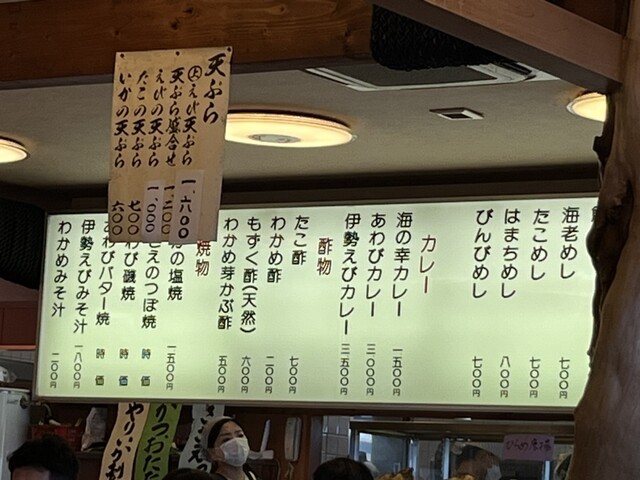 天ぷら
大えび天ぷら 一、六〇〇
天ぷら盛合せ 一、二〇〇
えびの天ぷら 一、〇〇〇
たこの天ぷら 七〇〇
いかの天ぷら 六〇〇
海老めし 七〇〇円
たこめし 七〇〇円
はまちめし 八〇〇円
びんびめし 七〇〇円
カレー
海の幸カレー 一五〇〇円
あわびカレー 三〇〇〇円
伊勢えびカレー 三五〇〇円
酢物
たこ酢 七〇〇円
わかめ酢 二〇〇円
もずく酢(天然) 六〇〇円
わかめ芽かぶ酢 五〇〇円
焼物
の塩焼 一五〇〇円
ざえのつぼ焼 時価
わび磯焼 時価
あわびバター焼 時価
伊勢えびみそ汁 一八〇〇円
わかめみそ汁 二〇〇円
やりいか